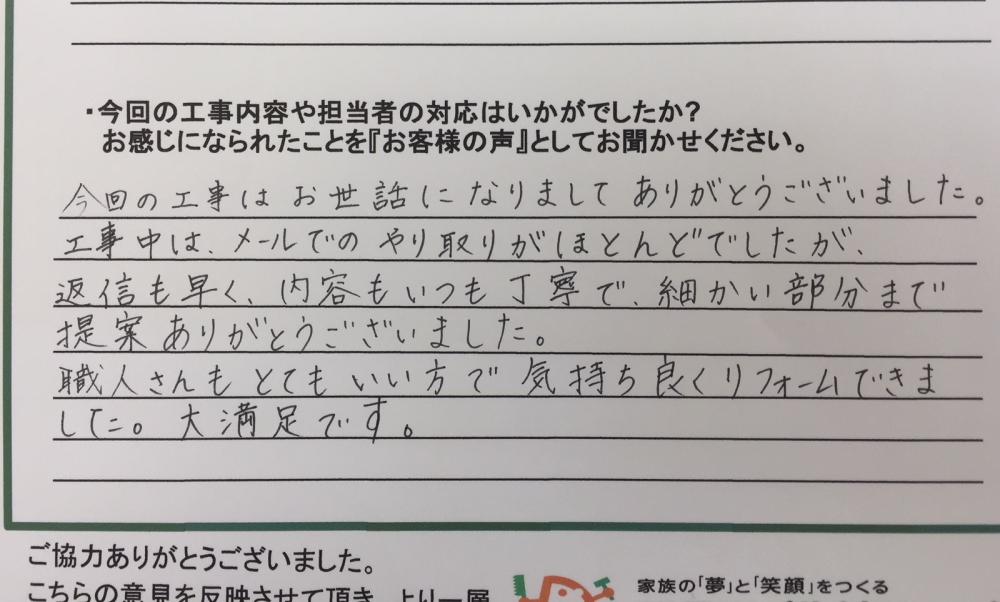 ・今回の工事内容や担当者の対応はいかがでしたか?
お感じになられたことを『お客様の声』としてお聞かせください。
今回の工事はお世話になりましてありがとうございました。
工事中は、メールでのやり取りがほとんどでしたが、
返信も早く、内容もいつも丁寧で、細かい部分まで
提案ありがとうございました。
職人さんもとてもいい方で気持ち良くリフォームできま
した。大満足です。
ご協力ありがとうございました。
こちらの意見を反映させて頂き、より一層
家族の「夢」と「笑顔」をつくる